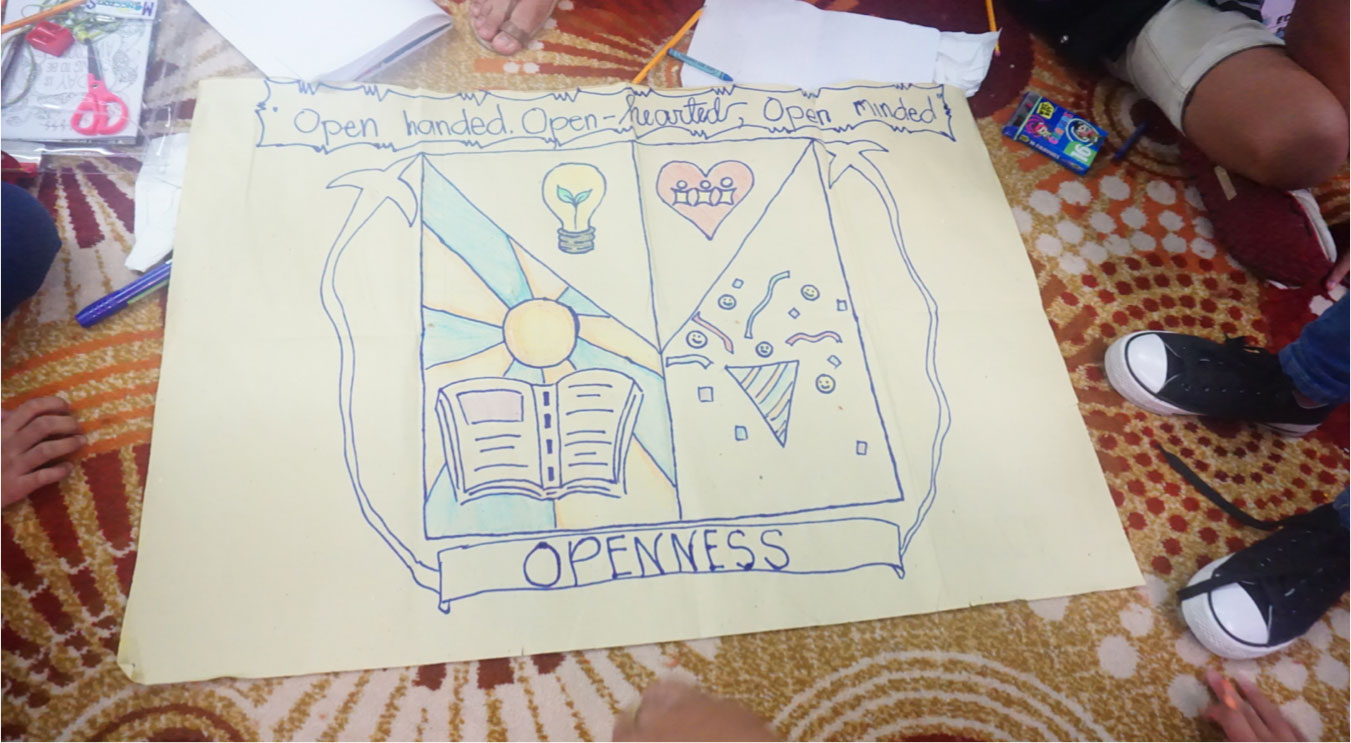 Open handed. Open-hearted, Open minded
OPENNESS
16